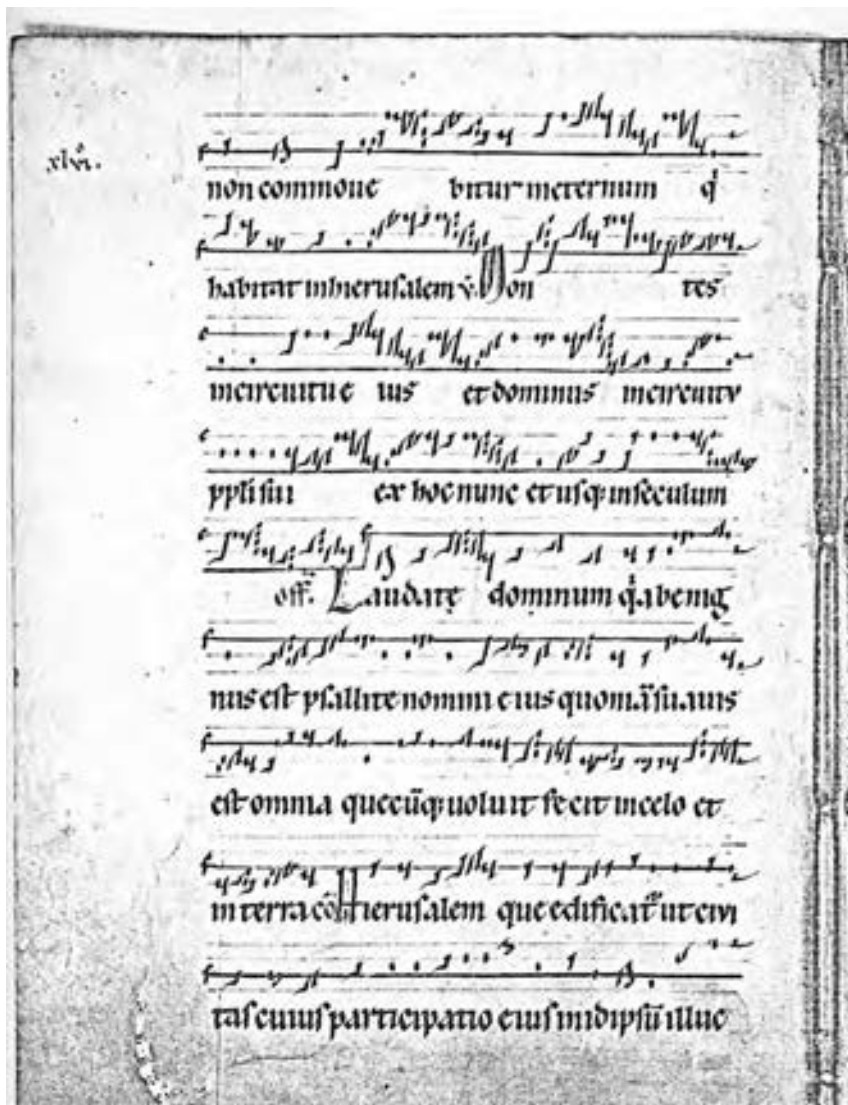 xlvi.
non commoue bitur ineternum q
habitat inhierusalem v. Mon tes
incircuitu e ius et dominus incircuitu
ppli sui ex hoc nunc et usq; inseculum
off. Laudate dominum q abenig
nus est psallite nomini eius quoniā suauis
est omnia quecūq; uoluit fecit incelo et
in terra cō Hierusalem que edificat ut ciui
tas cuius participatio eius inidipsū illuc